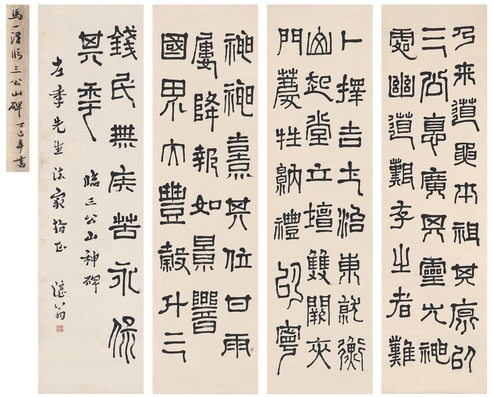 乃來道要本祖其原以
三公德廣其靈尤神
處幽道艱存之者難
卜擇吉土治東就衡
山起堂立壇雙闕夾
門薦牲納禮以寧
神神熹其位甘雨
屢降報如景響
國界大豐穀斗三
錢民無疾苦永保
其年
臨三公山神碑
左季先生法家指正 湛翁
馬一浮臨三公山碑 丁巳年